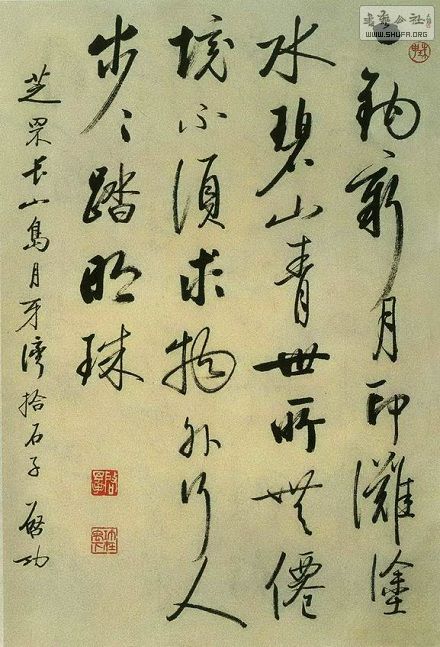 鈎新月印灘塗
水碧山青世所無僊
境不須求物外行人
步〻踏明珠
芝罘長山島月牙灣拾石子 啟功
WWW.SHUFA.ORG